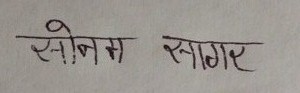 सोनम सागर